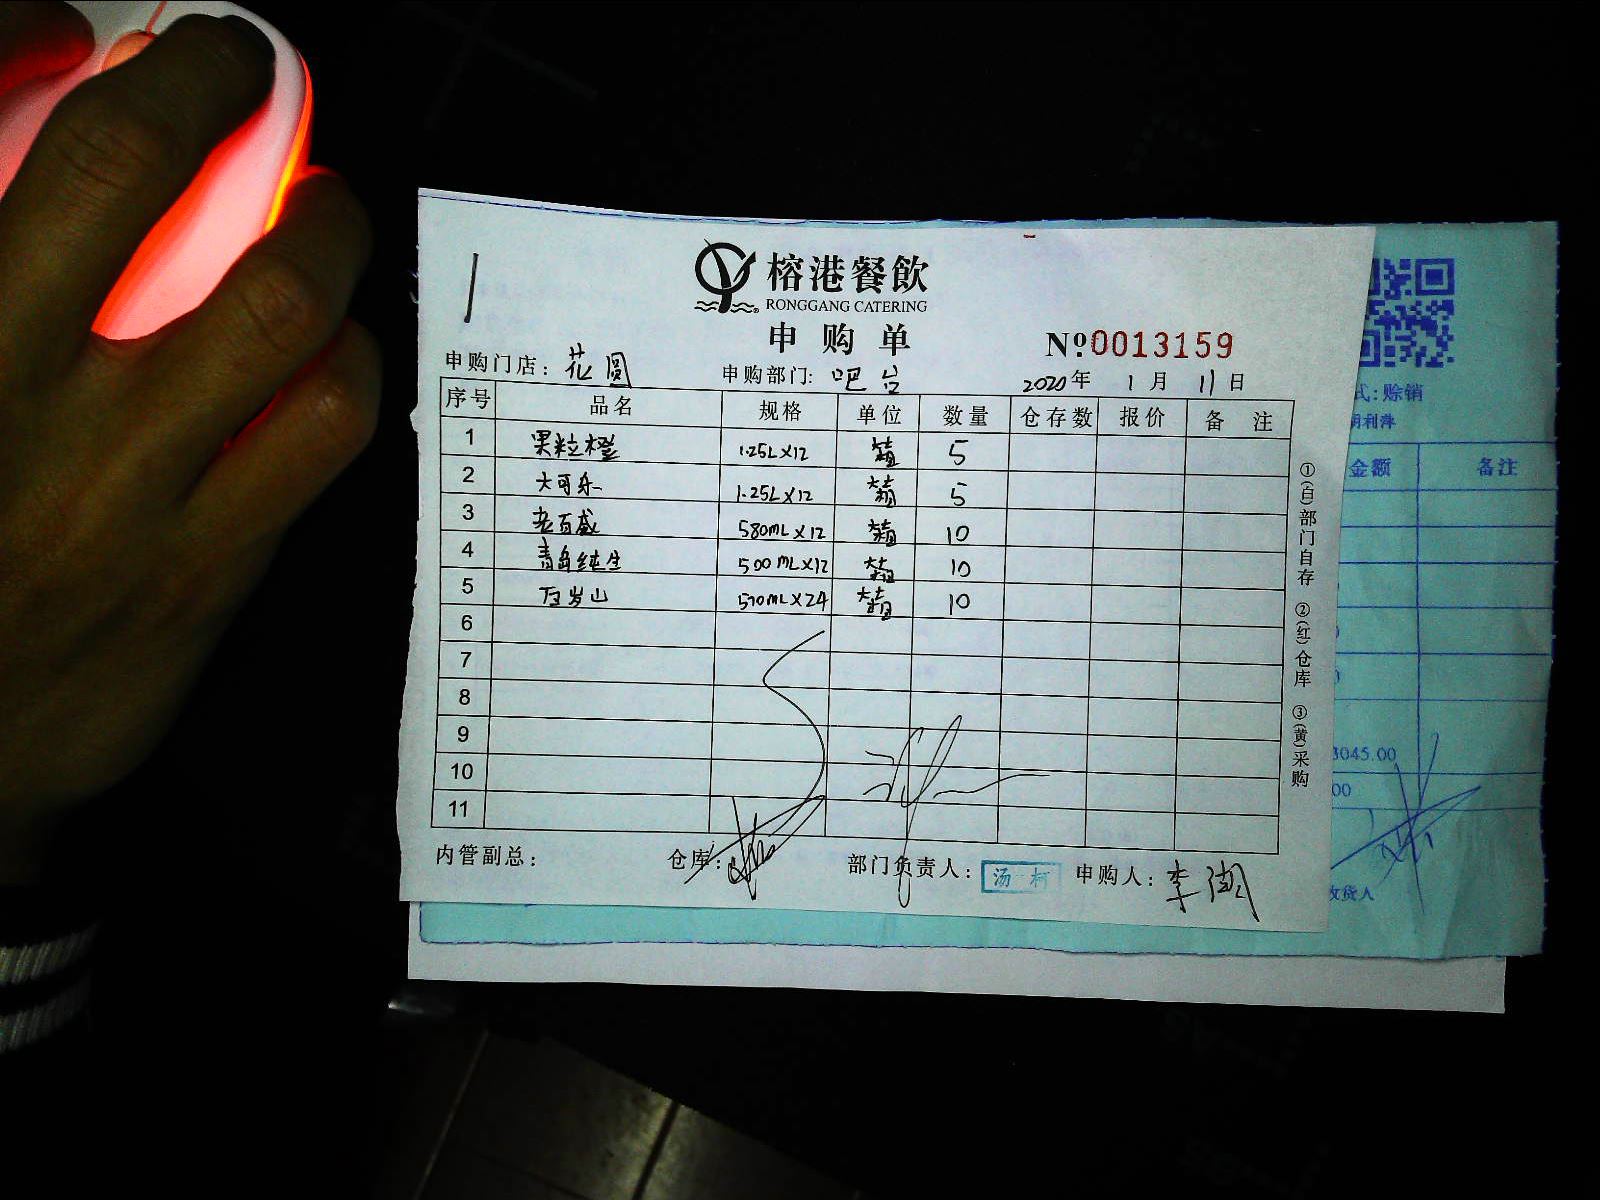 榕港餐飲
RONGGANG CATERING
申购单
№0013159
申购门店：花圆 申购部门：吧台 2020年1月11日
序号 品名 规格 单位 数量 仓存数 报价 备注
1 果粒橙 1.25L×12 箱 5
2 大可乐 1.25L×12 箱 5
3 老百威 580ML×12 箱 10
4 青岛纯生 500ML×12 箱 10
5 百岁山 570ML×24 箱 10
6
7
8
9
10
11
内管副总： 仓库： 部门负责人：汤柯 申购人：李湖
①(白)部门自存 ②(红)仓库 ③(黄)采购
式：赊销
胡利萍
金额 备注
3045.00
00
收货人